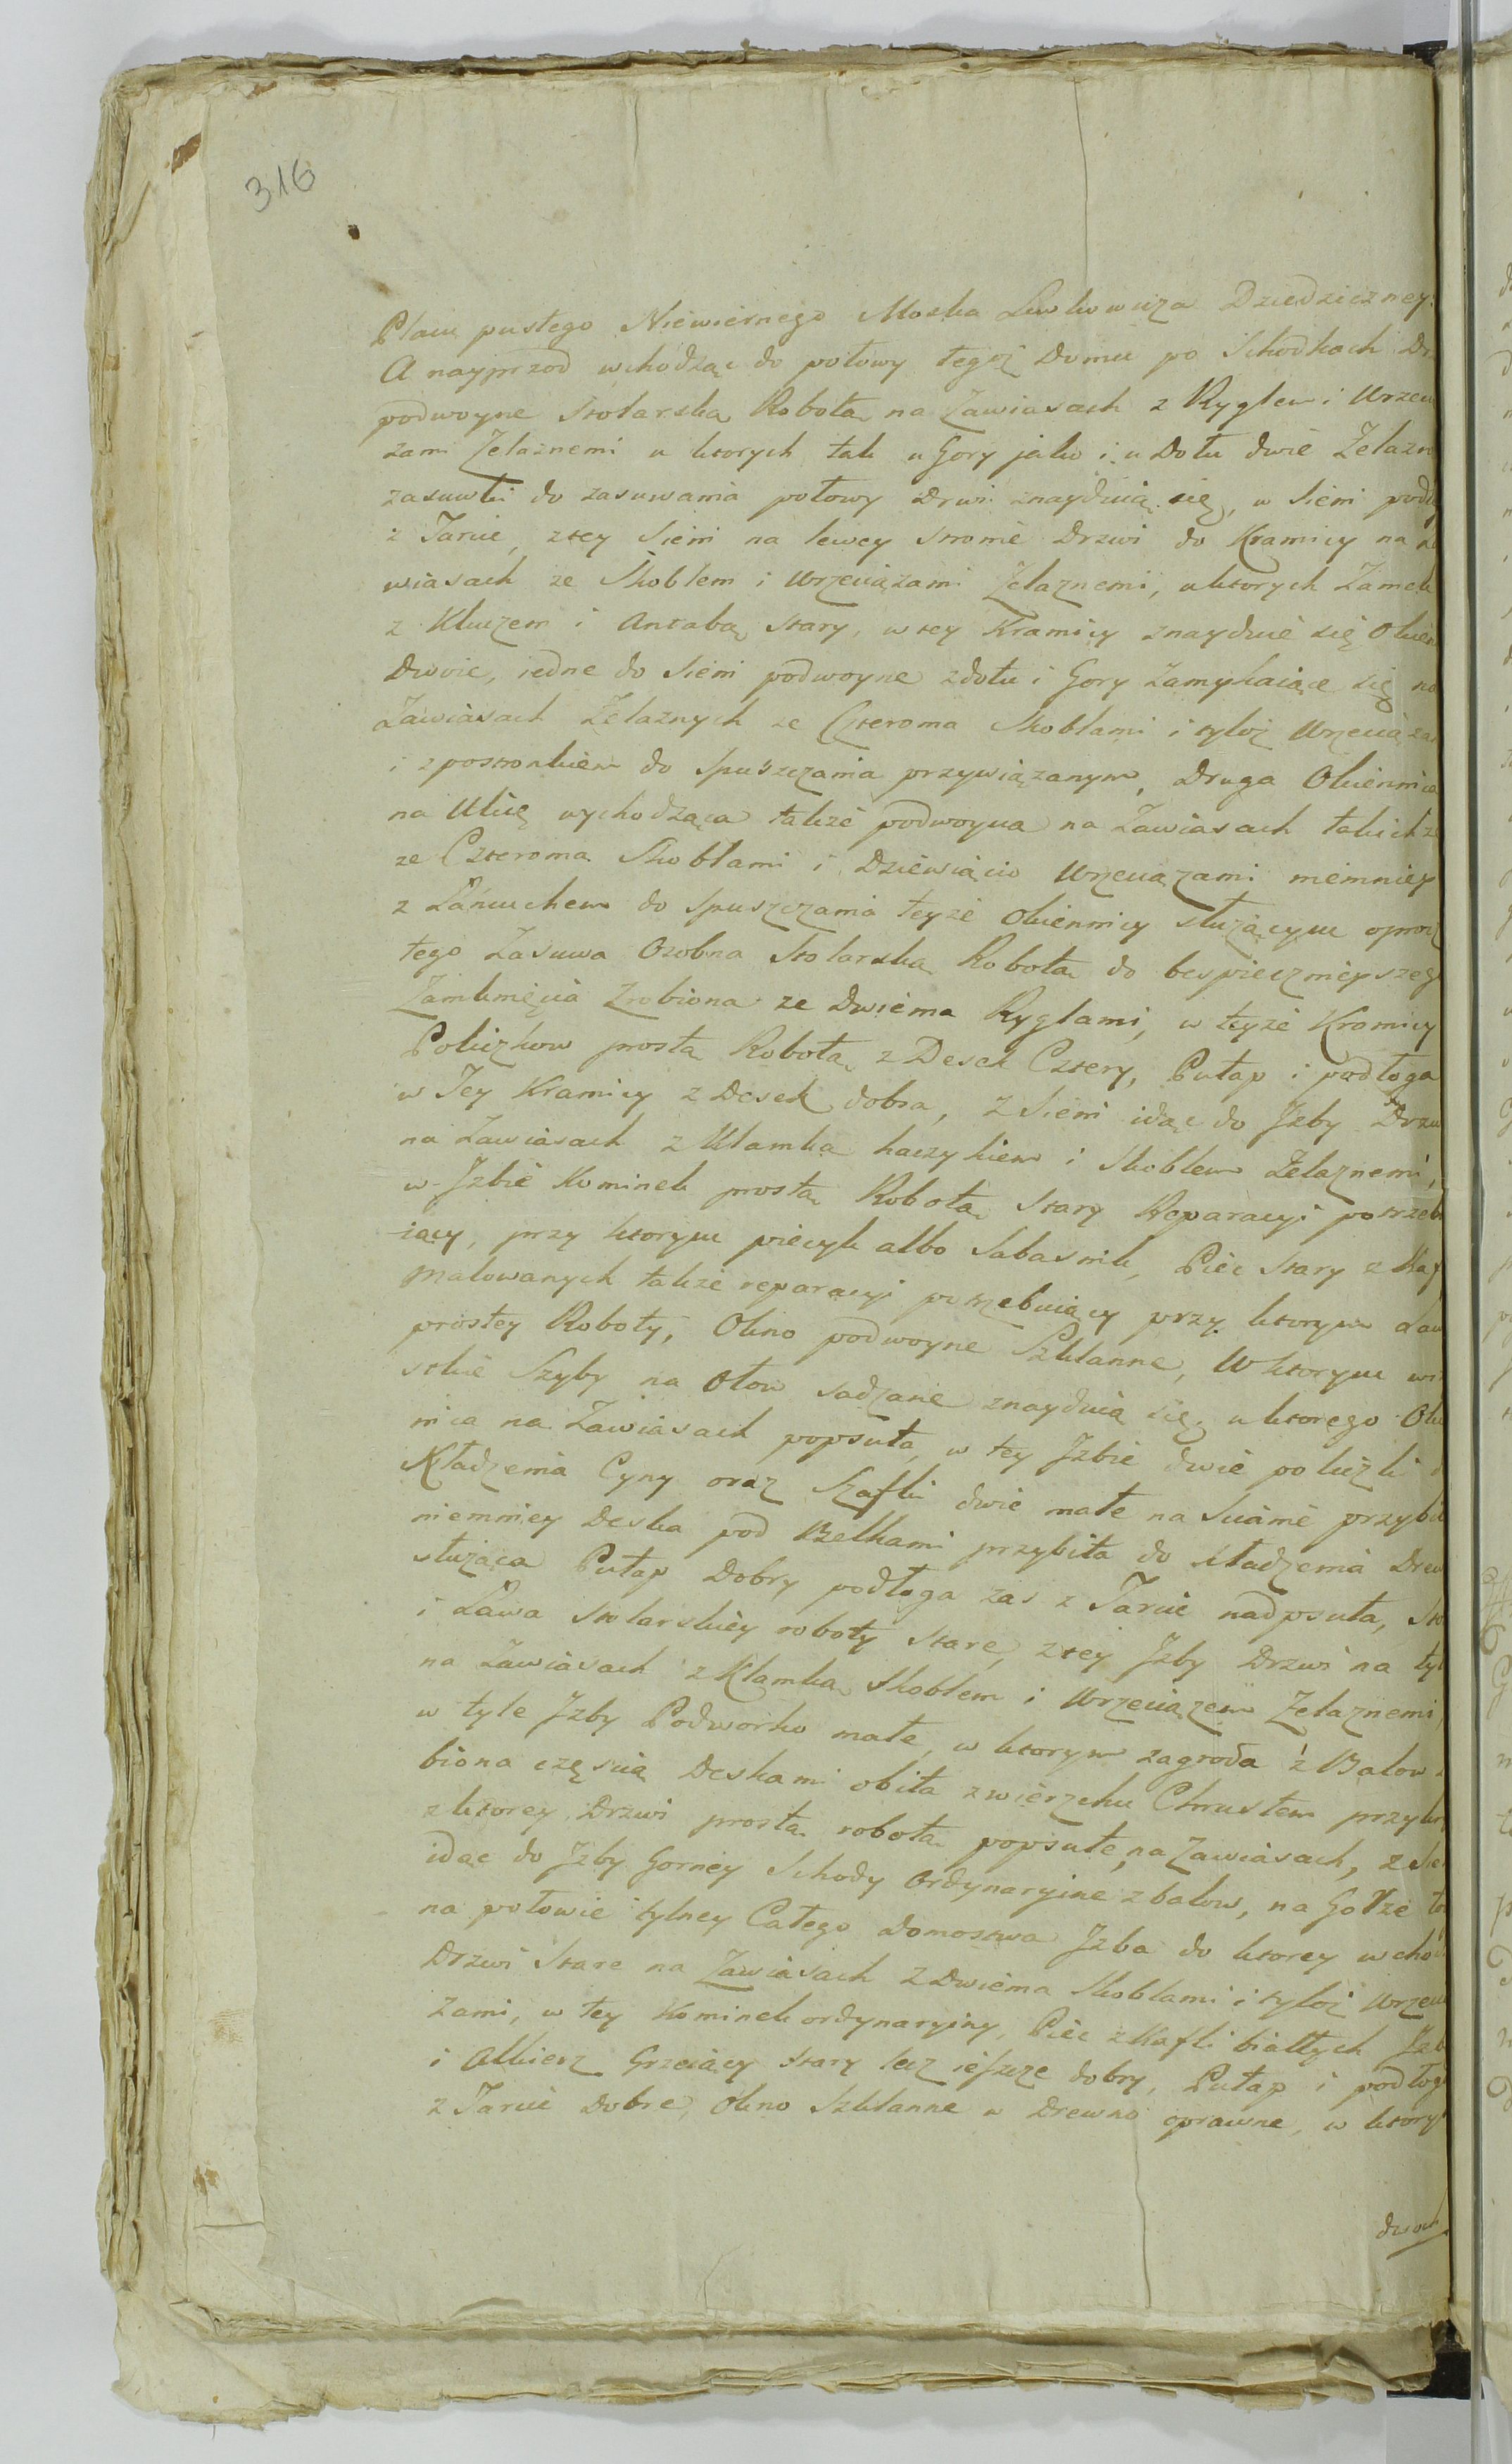 316
Placu pustego Niewiernego Moska Lewkowicza Dziedziczney:
A nayprzod wchodząc do połowy tegoż Domu po Schodkach Dr
podwoyne Stolarską Robotą na Zawiasach z Ryglem i Wrzeu
zami Zelaznemi u ktorych tak u Gory jako i u Dołu dwie Zelazn
zasuwki do zasuwania połowy Drwi znayduią się, w Sieni podł
z Tarcic, z tey Sieni na lewey stronie Drzwi do Kramicy na za
wiasach ze Skoblem i Wrzeciązami Zelaznemi, u ktorych Zamek
z Kluczem i Antabą stary, w tey Kramicy znayduie się Okien
Dwoie, iedne do Sieni podwoyne z dołu i Gory zamykaiące się na
Zawiasach Zelaznych ze Czteroma Skoblami i tyloż Wrzeciąza
i z postronkiem do Spuszczania przywiązanym, Druga Okiennica
na Ulicę wychodząca takze podwoyna na Zawiasach takichz
ze Czteroma Skoblami i Dziewiącio Wrzeciązami niemniey
z Łancuchem do Spuszczania teyze Okiennicy służącym oprocz
tego Zasuwa Osobna Stolarską Robotą do bespiecznieyszeg
Zamknięcia Zrobiona ze Dwiema Ryglami, w teyze Kramicy
Policzkow prostą Robotą z Desek Cztery, Pułap i podłoga
w Tey Kramicy z Desek dobra, z Sieni idąc do Jzby Drzw
na Zawiasach z Klamką haczykiem i Skoblem Zelaznemi,
w Jzbie Kominek prostą Robotą Stary Reparacyi potrzeb
iący, przy ktorym piecyk albo Sabasnik, Piec Stary z Kaf
Malowanych takze reparacyi potrzebuiący przy ktorym Ław
prostey Roboty, Okno podwoyne Szklanne, W ktorym wi
stkie Szyby na Ołow sadzane znayduią się, u ktorego Oki
nica na Zawiasach popsuta, w tey Jzbie dwie policzki d
Kładzenia Cyny oraz Szafki dwie małe na Scianie przybi
niemniey Deska pod Belkami przybita do kładzenia Drew
służąca Pułap Dobry podłoga zas z Tarcic nadpsuta, Sto
i Ława Stolarskiey roboty stare, z tey Jzby Drzwi na tył
na Zawiasach z Klamką Skoblem i Wrzeciązem Zelaznemi,
w tyle Jzby Podworko małe, w ktorym zagroda z Balow z
biona częscią Deskami obita z wierzchu Chrustem przykr
z ktorey Drzwi prostą robotą popsute na Zawiasach, z Sie
idąc do Jzby Gorney Schody Ordynaryine z balow, na Gorze to
na połowie tylney Całego Domostwa Jzba do ktorey wchod
Drzwi Stare na Zawiasach z Dwiema Skoblami i tyloż Wrzeci
zami, w tey Kominek ordynaryiny, Piec z Kafli białych Jzb
i Alkierz Grzeiący stary lecz ieszcze dobry, Pułap i podłog
z Tarcic Dobre, Okno Szklanne w Drewno oprawne, w ktory
dwoch